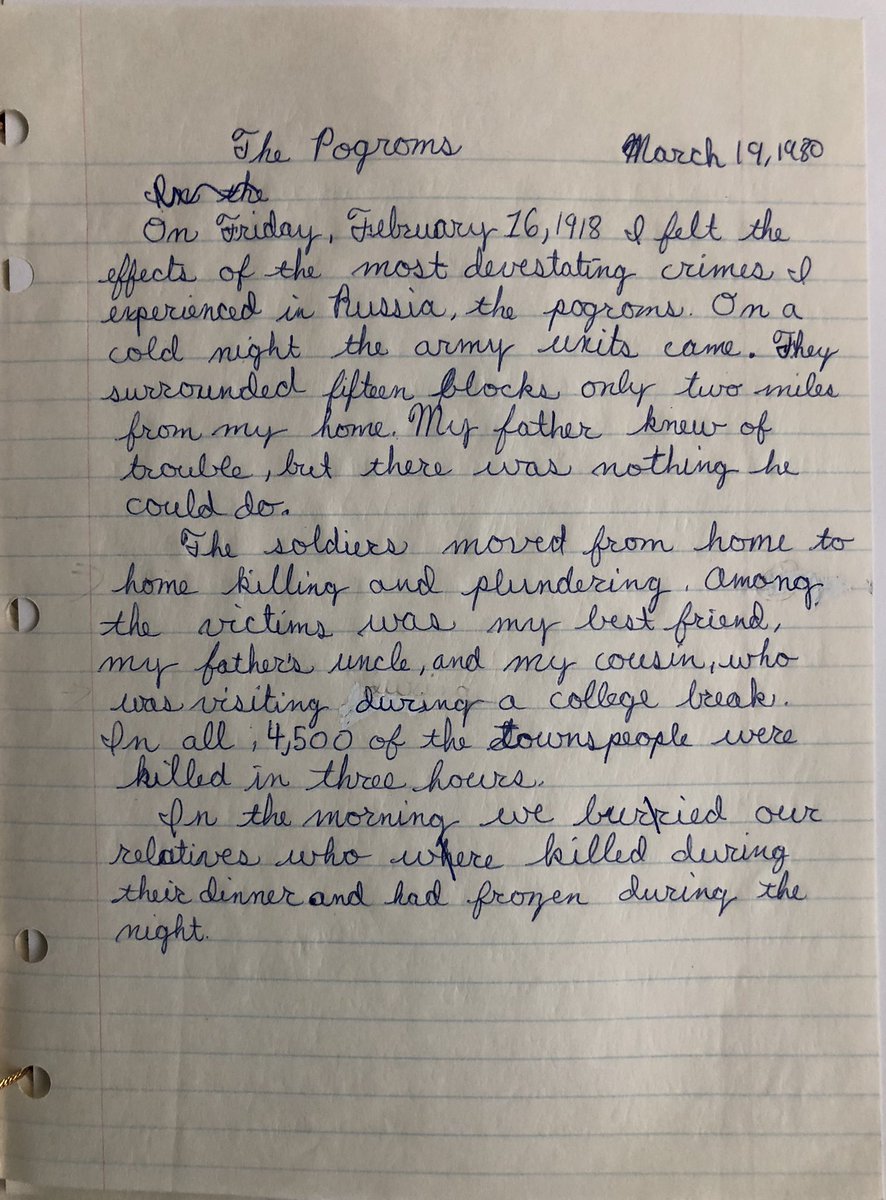 The Pogroms March 19, 1980
In the
On Friday, February 16, 1918 I felt the
effects of the most devestating crimes I
experienced in Russia, the pogroms. On a
cold night the army units came. They
surrounded fifteen blocks only two miles
from my home. My father knew of
trouble, but there was nothing he
could do.
The soldiers moved from home to
home killing and plundering. Among
the victims was my best friend,
my father's uncle, and my cousin, who
was visiting during a college break.
In all, 4,500 of the townspeople were
killed in three hours.
In the morning we buried our
relatives who were killed during
their dinner and had frozen during the
night.